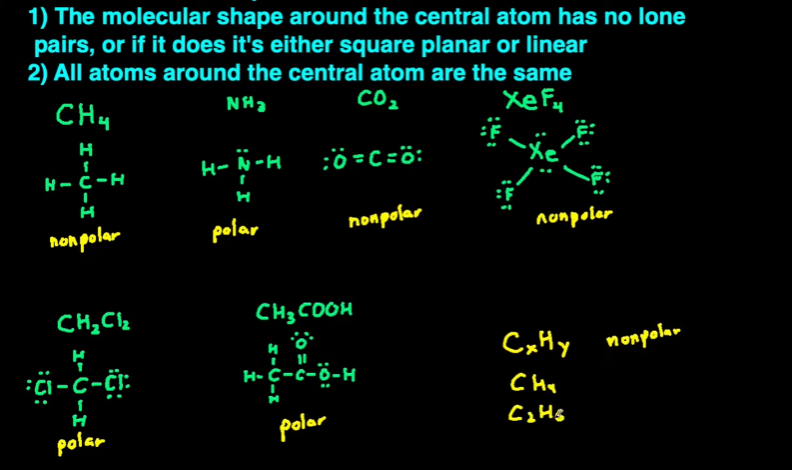 1) The molecular shape around the central atom has no lone
pairs, or if it does it's either square planar or linear
2) All atoms around the central atom are the same
CH₄
H
H-C-H
H
nonpolar
NH₃
H-N-H
H
polar
CO₂
:O=C=O:
nonpolar
XeF₄
:F F:
Xe
:F F:
nonpolar
CH₂Cl₂
H
:Cl-C-Cl:
H
polar
CH₃COOH
H :O:
H-C-C-O-H
H
polar
CxHy nonpolar
CH₄
C₂H₅